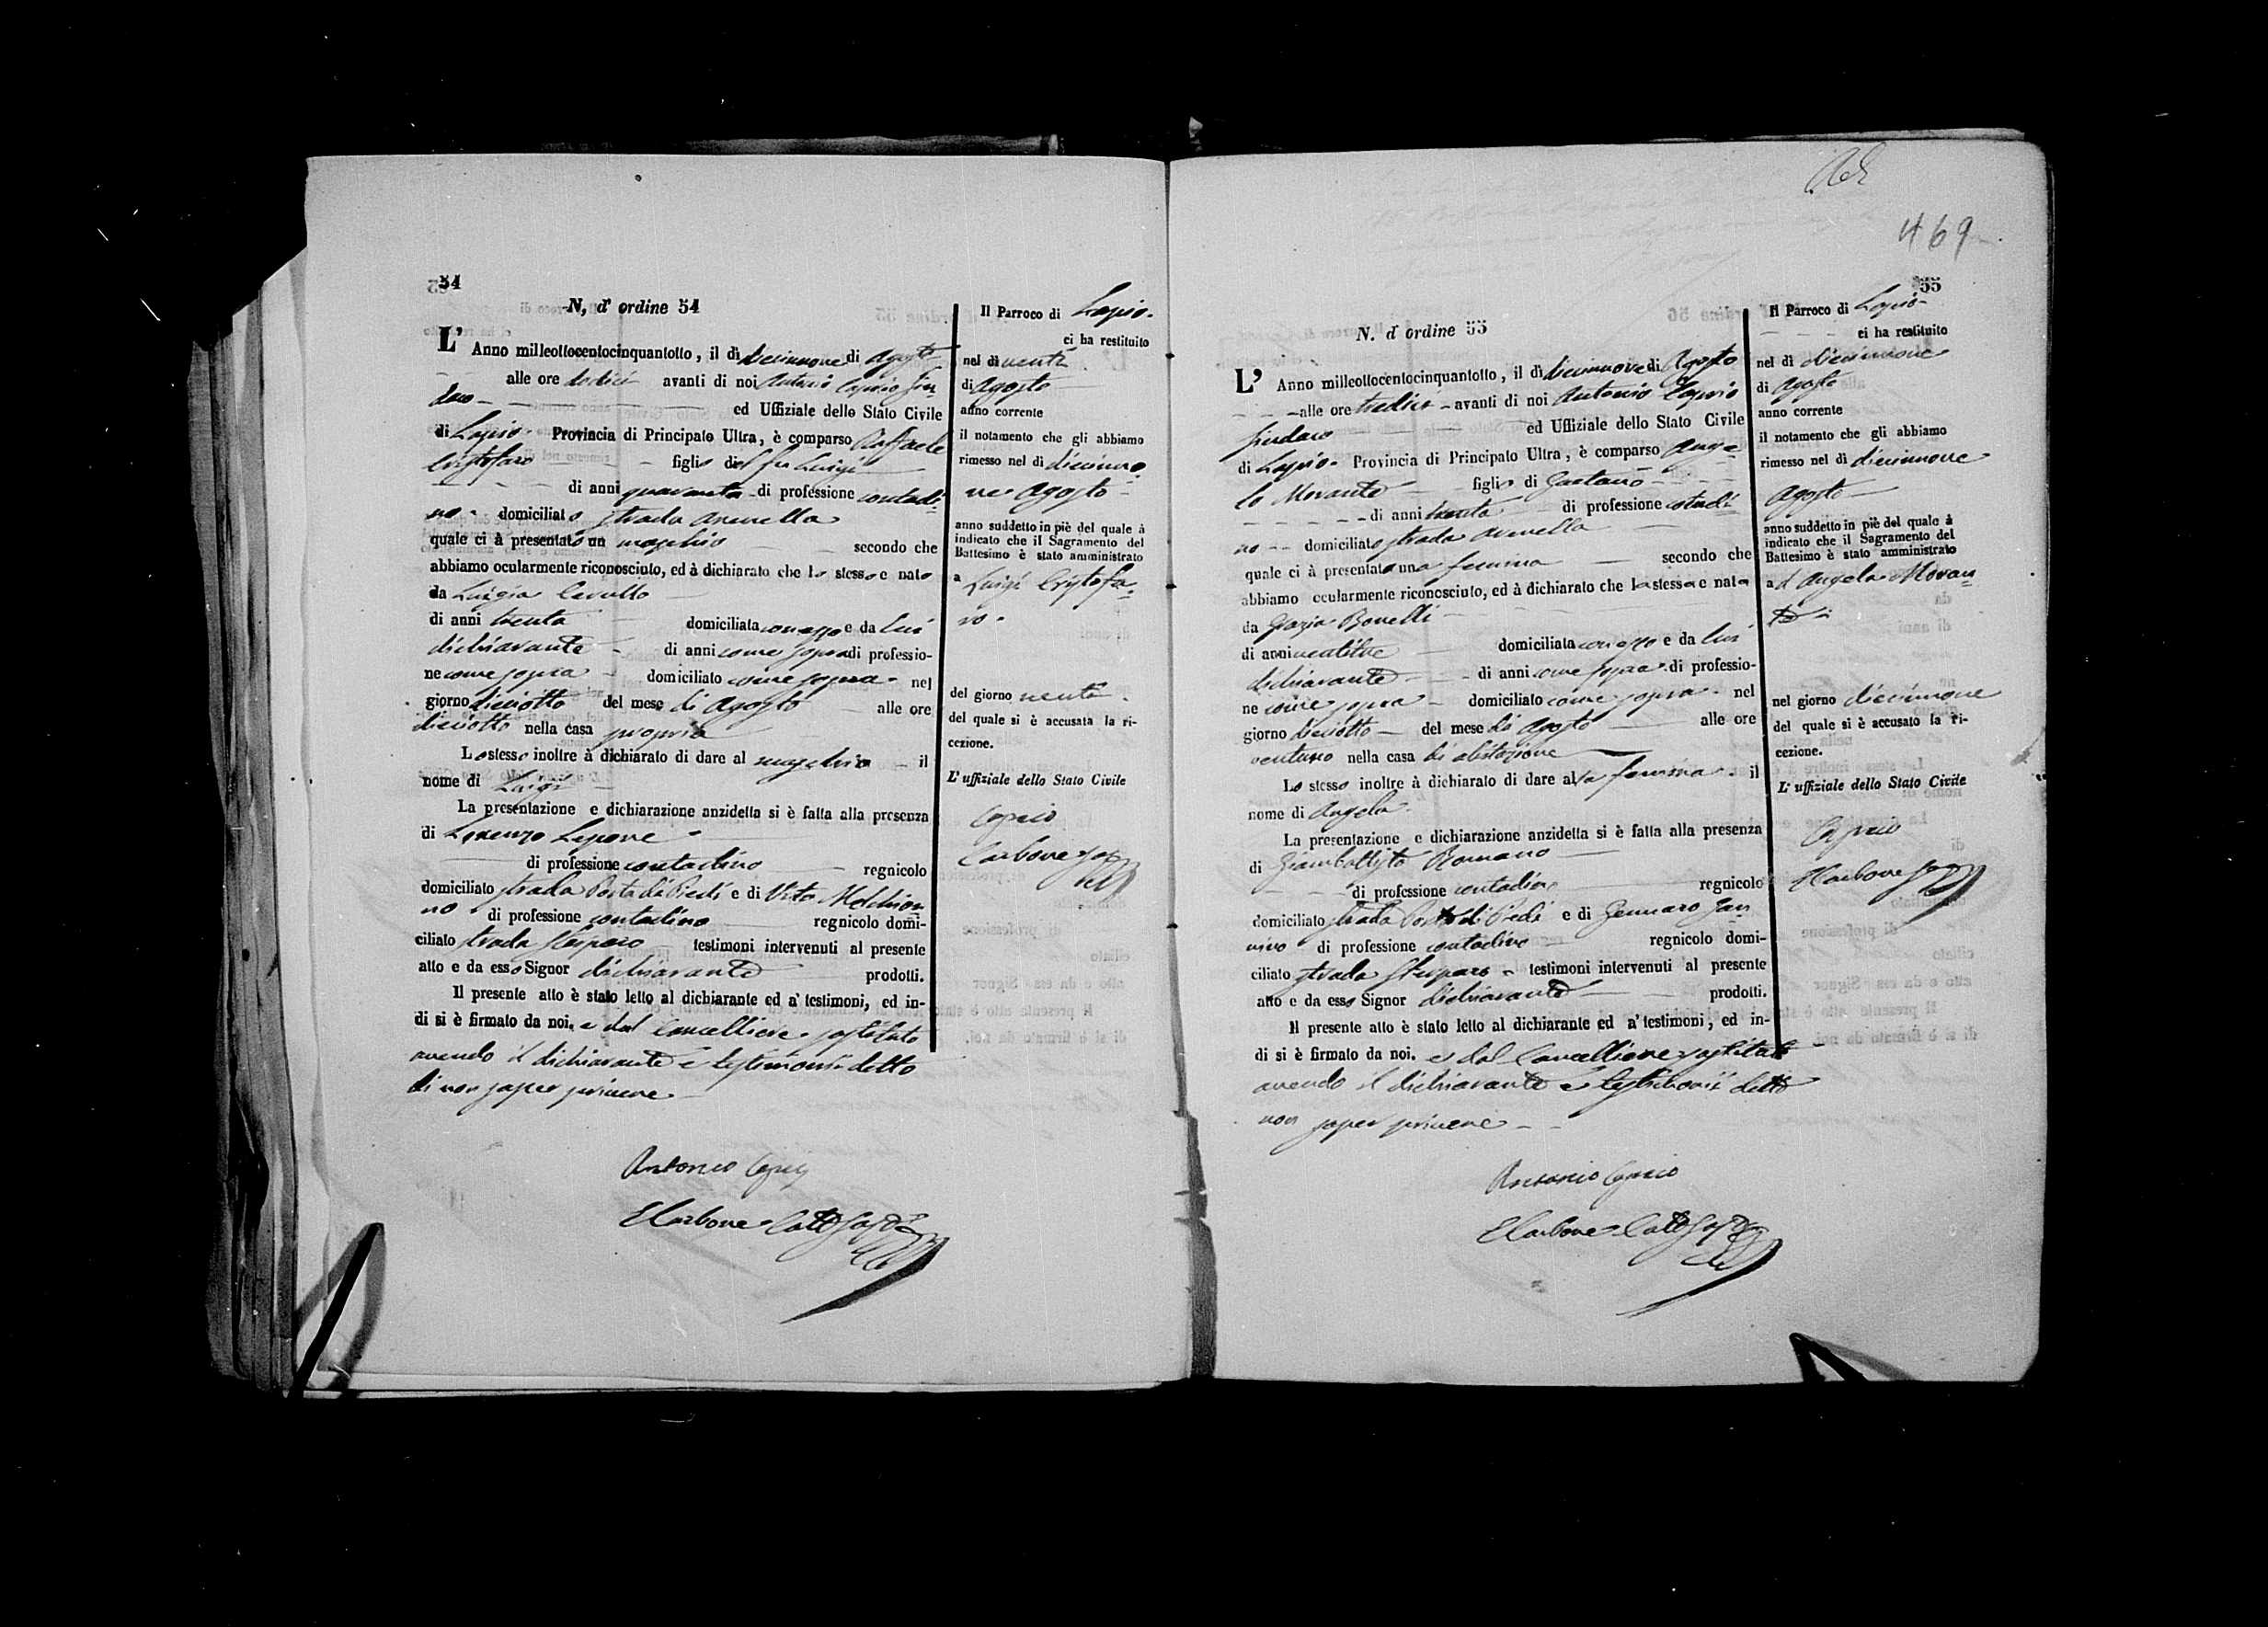 54
N, d' ordine 54
L' Anno milleottocentocinquantotto, il dì diecinnove di Agosto
alle ore dodici avanti di noi Antonio Caprio Sin
daco ed Uffiziale dello Stato Civile
di Lapio. Provincia di Principato Ultra, è comparso Raffaele
Cristofaro figlio del fu Luigi
di anni quaranta di professione contadi
no domiciliato strada Arenella
quale ci à presentato un maschio secondo che
abbiamo ocularmente riconosciuto, ed à dichiarato che lo stesso e nato
da Luigia
di anni trenta domiciliata con esso e da lui
dichiarante di anni come sopra di professio-
ne come sopra domiciliato come sopra nel
giorno dieciotto del mese di Agosto alle ore
dieciotto nella casa propria
Lo stesso inoltre à dichiarato di dare al maschio il
nome di Luigi
La presentazione e dichiarazione anzidetta si è fatta alla presenza
di Lorenzo Lepore
di professione contadino regnicolo
domiciliato strada Porta di Piedi e di Vito Melchion
no di professione contadino regnicolo domi-
ciliato strada testimoni intervenuti al presente
atto e da esso Signor dichiarante prodotti.
Il presente atto è stato letto al dichiarante ed a' testimoni, ed in-
di si è firmato da noi, e dal Cancelliere sostituto
avendo il dichiarante e testimonii detto
di non saper scrivere
Antonio Caprio
E Carbone Canc Sostº
Il Parroco di Lapio.
ci ha restituito
nel dì venti
di Agosto
anno corrente
il notamento che gli abbiamo
rimesso nel dì diecinno
ve Agosto
anno suddetto in piè del quale à
indicato che il Sagramento del
Battesimo è stato amministrato
a Luigi Cristofa
ro.
del giorno venti
del quale si è accusata la ri-
cezione.
L' uffiziale dello Stato Civile
Caprio
Carbone
469
55
N. d ordine 55
L' Anno milleottocentocinquantotto, il dì diecinnove di Agosto
alle ore tredici avanti di noi Antonio Caprio
Sindaco ed Uffiziale dello Stato Civile
di Lapio. Provincia di Principato Ultra, è comparso Ange
lo Morante figlio di Gaetano
di anni trenta di professione contadi
no domiciliato strada Arenella
quale ci à presentato una femina secondo che
abbiamo ocularmente riconosciuto, ed à dichiarato che la stessa e nata
da Grazia Bonelli
di anni ventitre domiciliata con esso e da lui
dichiarante di anni come sopra di professio-
ne come sopra domiciliato come sopra nel
giorno dieciotto del mese di Agosto alle ore
ventuno nella casa di abitazione
Lo stesso inoltre à dichiarato di dare alla femina il
nome di Angela
La presentazione e dichiarazione anzidetta si è fatta alla presenza
di Giambattista Romano
di professione contadino regnicolo
domiciliato strada Porta di Piedi e di Gennaro Jan
nino di professione contadino regnicolo domi-
ciliato strada testimoni intervenuti al presente
atto e da esso Signor dichiarante prodotti.
Il presente atto è stato letto al dichiarante ed a' testimoni, ed in-
di si è firmato da noi. e dal Cancelliere sostituto
avendo il dichiarante e testimonii detto
non saper scrivere
Antonio Caprio
E Carbone Canc Sostº
Il Parroco di Lapio
ci ha restituito
nel dì diecinnove
di Agosto
anno corrente
il notamento che gli abbiamo
rimesso nel dì diecinnove
Agosto
anno suddetto in piè del quale à
indicato che il Sagramento del
Battesimo è stato amministrato
a d Angela Moran
te
nel giorno diecinnove
del quale si è accusato la ri-
cezione.
L' uffiziale dello Stato Civile
Caprio
E Carbone